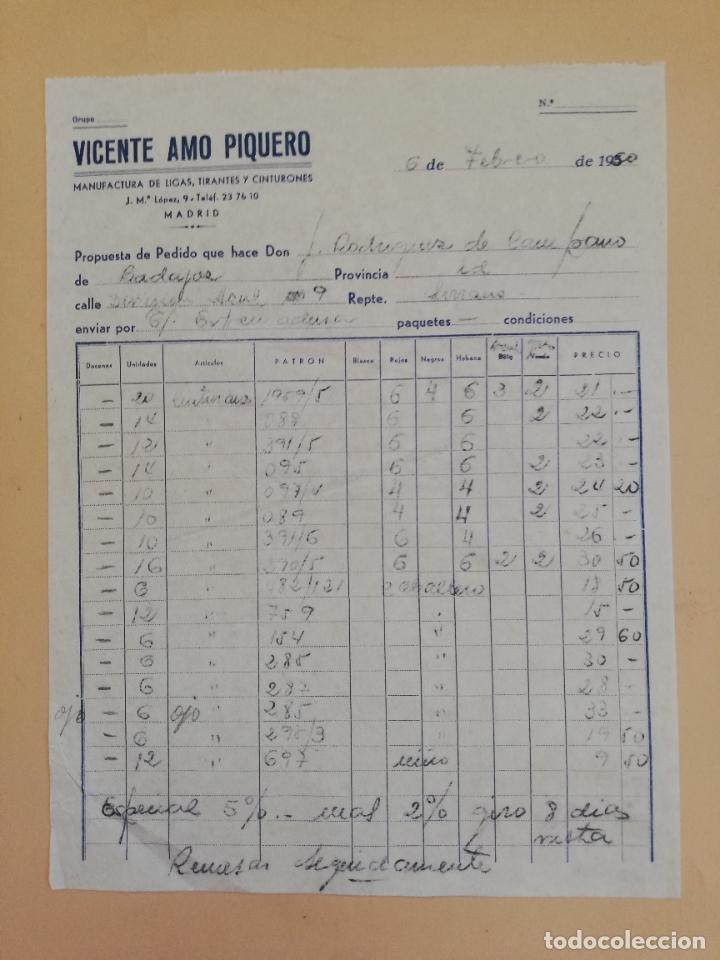 Grupo
N.º
VICENTE AMO PIQUERO
MANUFACTURA DE LIGAS, TIRANTES Y CINTURONES
J. M.ª López, 9 - Teléf. 23 76 10
MADRID
6 de Febrero de 1950
Propuesta de Pedido que hace Don J. Rodriguez de Campano
de Badajoz Provincia id
calle Division Azul 9 Repte. Serrano
enviar por paquetes — condiciones
Docenas Unidades Artículos PATRON Blanco Rojos Negros Habana PRECIO
— 20 1959/5 6 4 6 3 2 21 .-
— 14 " 088 6 6 2 22 .-
— 12 " 391/5 6 6 22 .-
— 14 " 095 6 6 2 23 -
— 10 " 4 4 2 24 20
— 10 " 089 4 4 2 25 -
— 10 " 391/6 6 4 26 -
— 16 " 290/5 6 6 2 2 30 50
— 6 " 482/121 caballero 18 50
— 12 " 759 " 15 -
— 6 " 154 " 29 60
— 6 " 285 " 30 -
— 6 " 287 " 28 -
ojo — 6 ojo " 285 " 33 -
— 6 " 298/3 " 19 50
— 12 " 697 niño 9 50
Especial 5% .- mas 2% giro 8 dias
vista
Remesar Seguidamente
todocoleccion.net